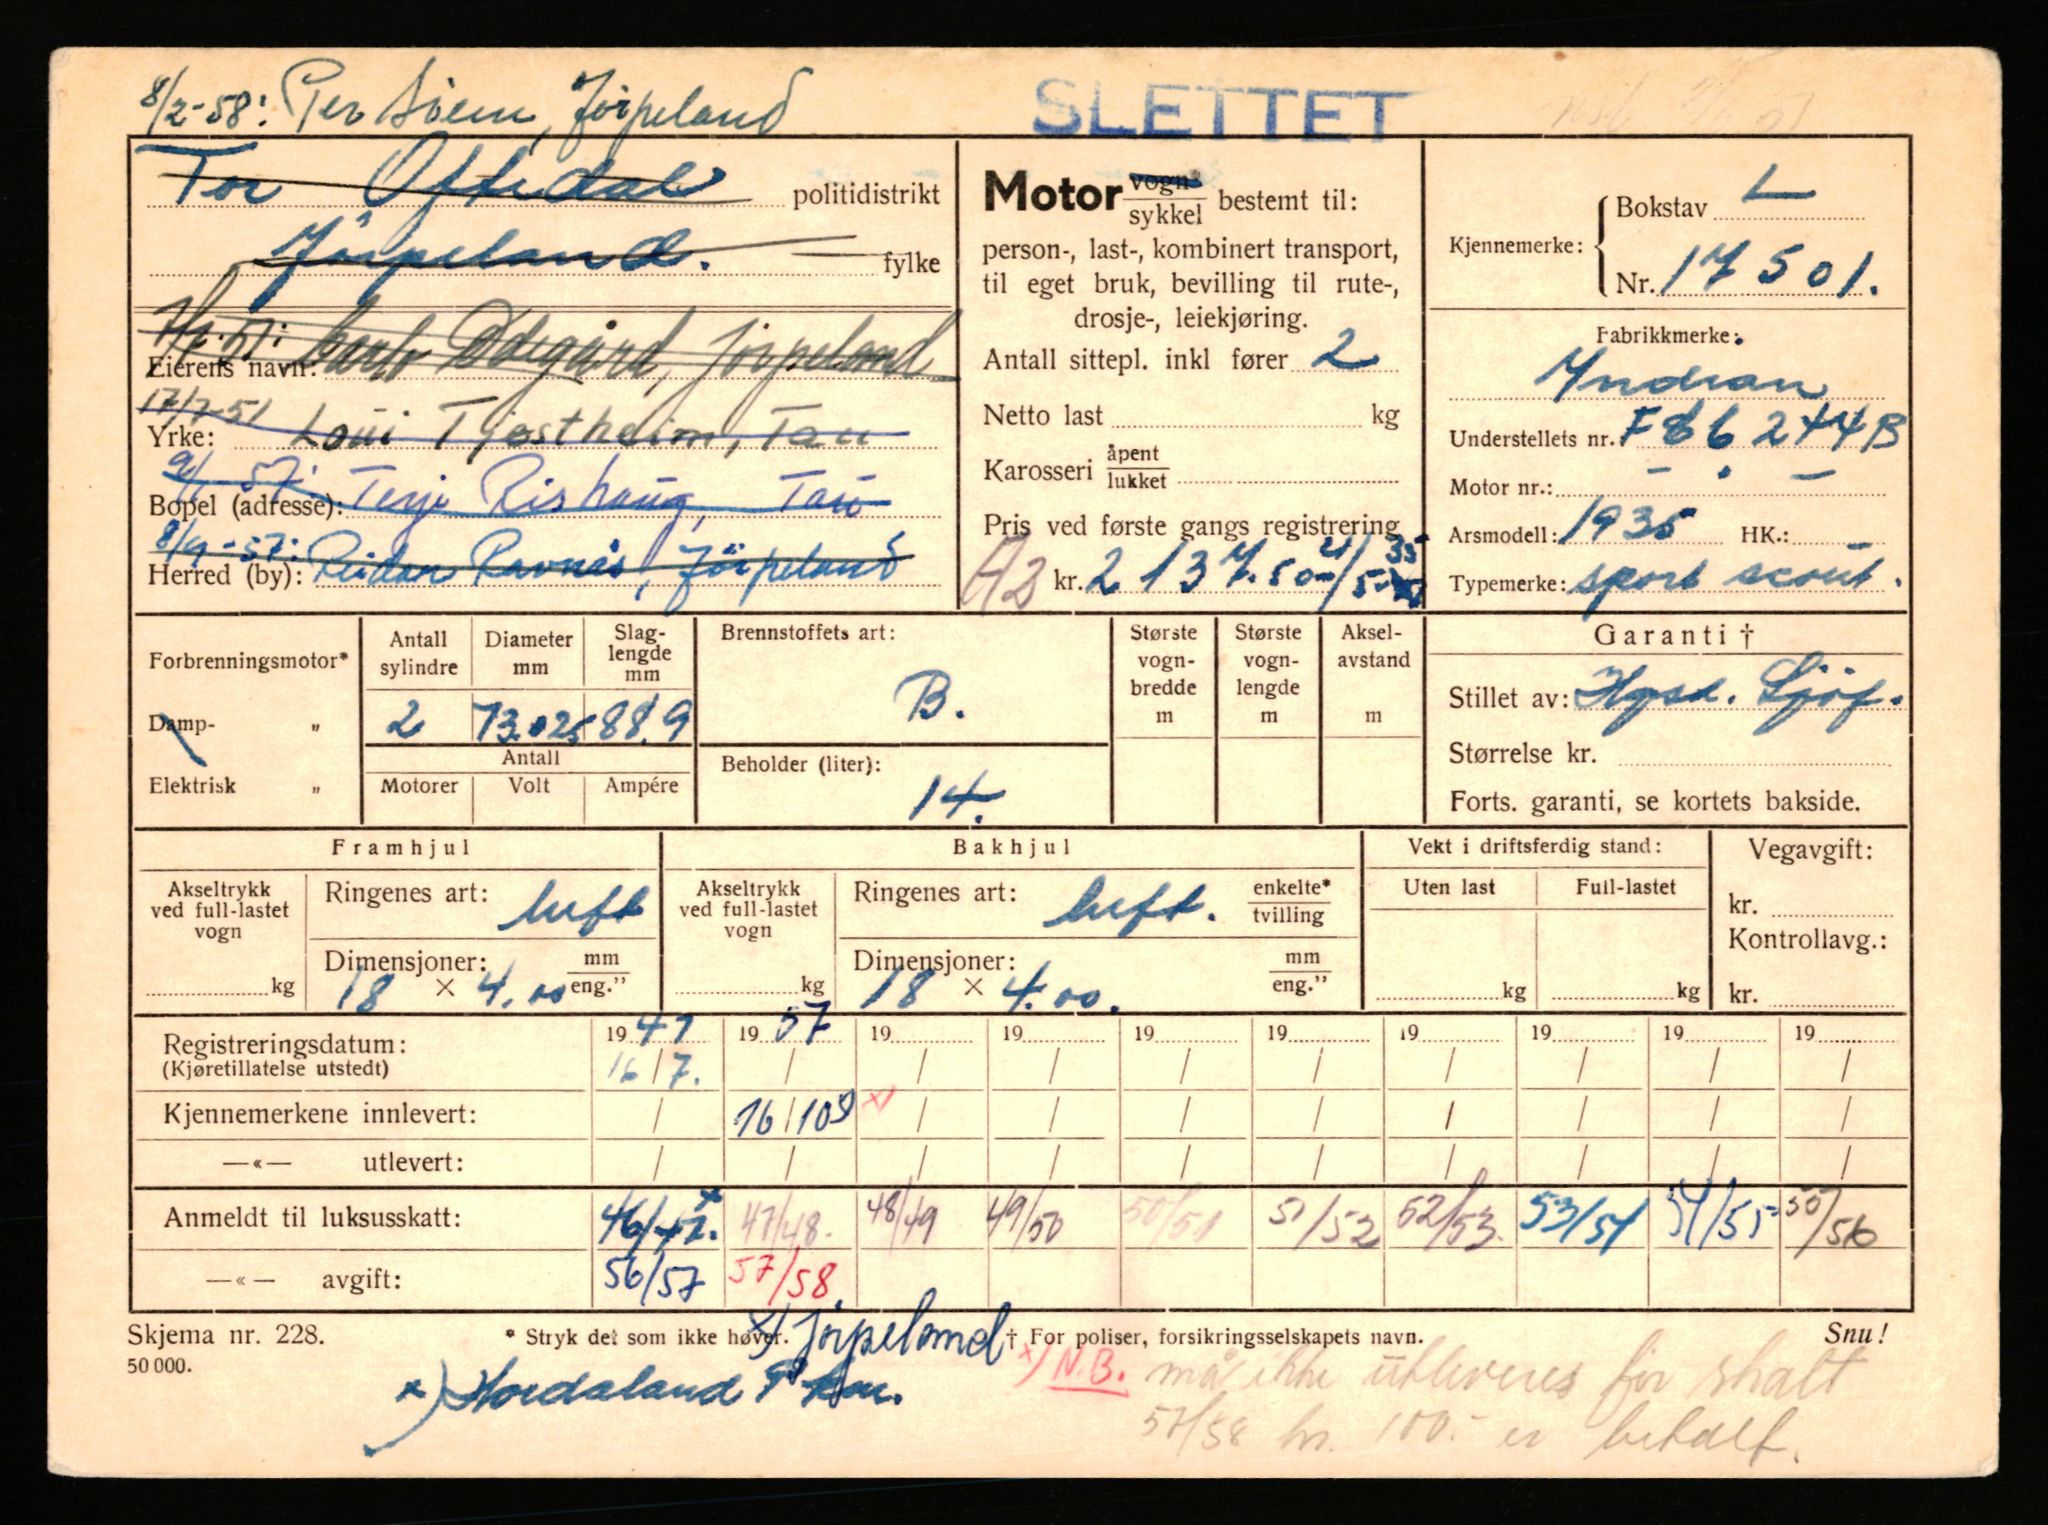 8/2-58: Per Soem, Jørpeland
SLETTET
Tor Oftedal politidistrikt
Jørpeland. fylke
Odegård, Jørpeland
Eierens navn:
17/7-51 Loui Tjøstheim, Tau
Yrke:
9/1 57: Terje Rishaug, Tau
Bopel (adresse):
8/9-57: Reidar Ravnås, Jörpeland
Herred (by):
Motor vogn* sykkel bestemt til:
person-, last-, kombinert transport,
til eget bruk, bevilling til rute-,
drosje-, leiekjøring.
Antall sittepl. inkl fører 2
Netto last kg
Karosseri åpent lukket
Pris ved første gangs registrering
kr. 2137.50
Kjennemerke: Bokstav L
Nr. 17501.
Fabrikkmerke:
Yndian
Understellets nr. F86244B
Motor nr.: - . -
Arsmodell: 1935 HK.: -
Typemerke: sport scout.
Forbrenningsmotor*
Damp- „
Elektrisk „
Antall sylindre 2
Diameter mm 73.025
Slag-lengde mm 88.9
Antall
Motorer Volt Ampére
Brennstoffets art:
B.
Beholder (liter):
14.
Største vogn-bredde m
Største vogn-lengde m
Aksel-avstand m
Garanti †
Stillet av: Hgsd. Sjöf.
Størrelse kr.
Forts. garanti, se kortets bakside.
Framhjul
Akseltrykk ved full-lastet vogn kg
Ringenes art: luft
Dimensjoner: mm eng.”
18 × 4.00
Bakhjul
Akseltrykk ved full-lastet vogn kg
Ringenes art: luft. enkelte* tvilling
Dimensjoner: mm eng.”
18 × 4.00.
Vekt i driftsferdig stand:
Uten last Full-lastet
kg kg
Vegavgift:
kr.
Kontrollavg.:
kr.
Registreringsdatum: 1947 1957 19 19 19 19 19 19 19 19
(Kjøretillatelse utstedt) 16/7. / / / / / / / / /
Kjennemerkene innlevert: / 16/10 x) / / / / / / / /
—«— utlevert: / / / / / / / / / /
Anmeldt til luksusskatt: 46/47. 47/48. 48/49 49/50 50/51 51/52 52/53. 53/54 54/55 55/56
—«— avgift: 56/57 57/58
Skjema nr. 228. * Stryk det som ikke høver. x) Jørpeland † For poliser, forsikringsselskapets navn. Snu!
50 000.
x) Hordaland
x) N.B. må ikke utleveres før skatt
57/58 kr. 100.- er betalt.